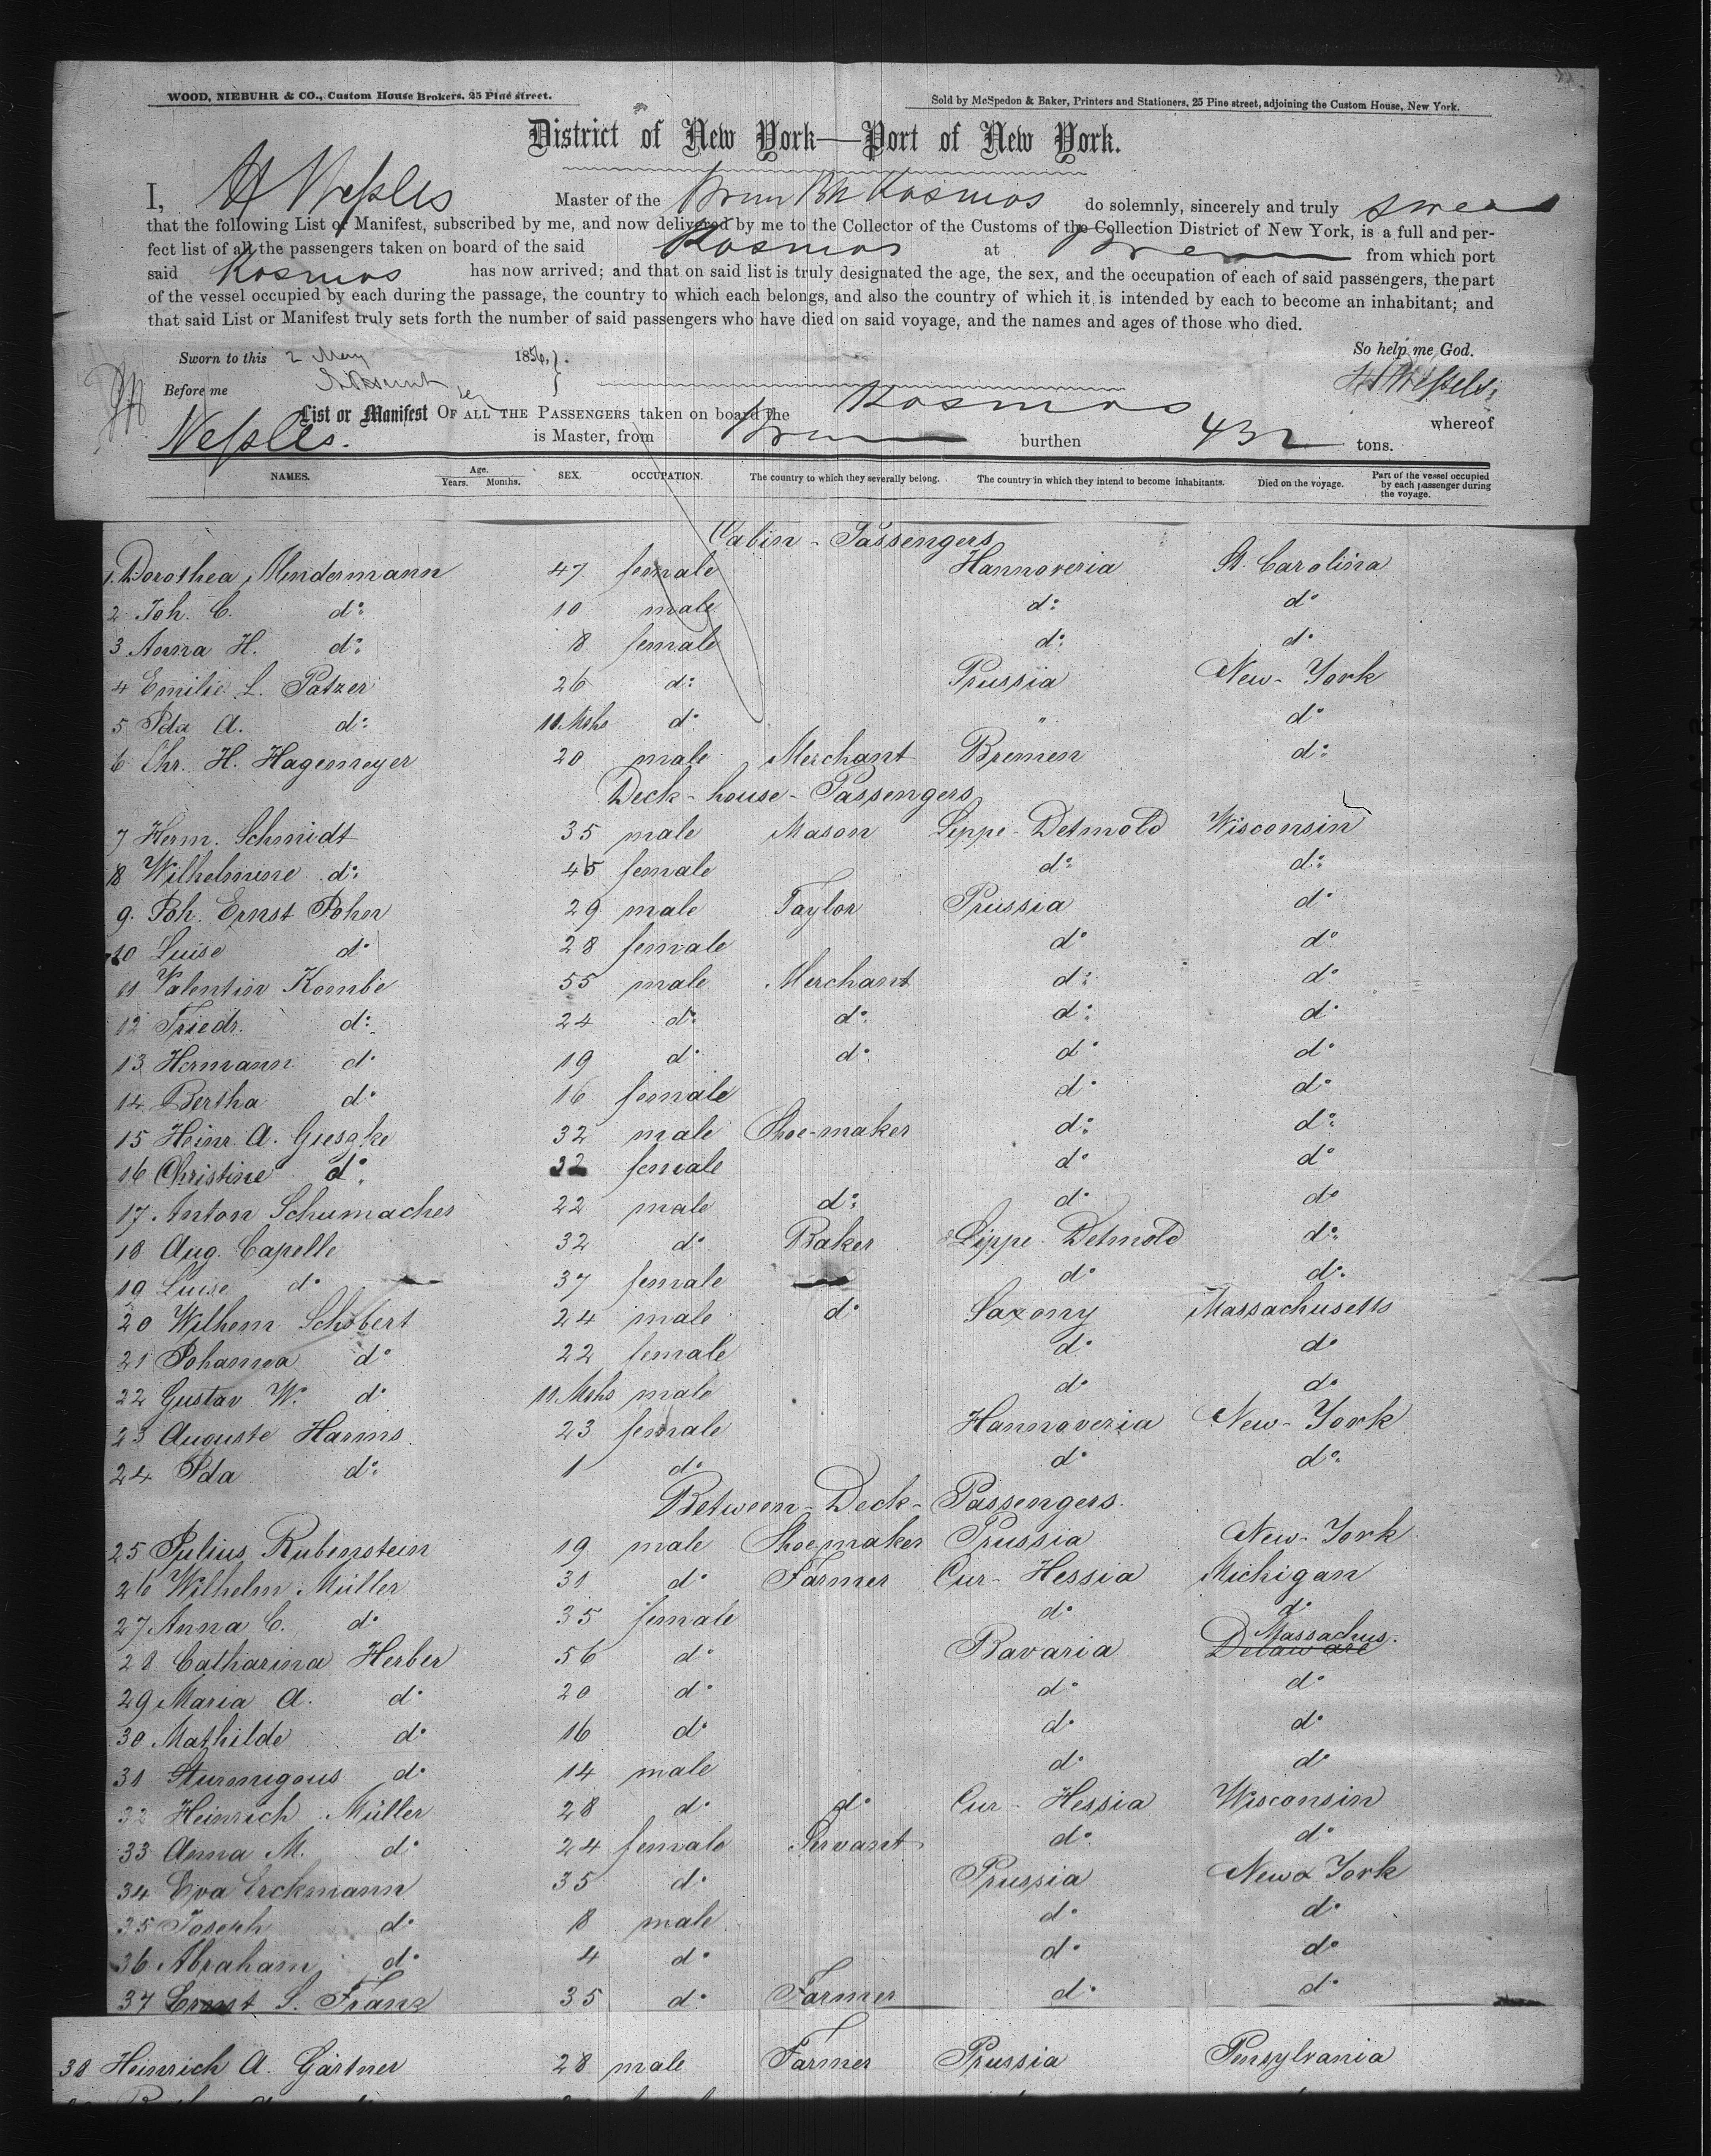 WOOD, NIEBUHR & CO., Custom House Brokers, 25 Pine street.
Sold by McSpedon & Baker, Printers and Stationers, 25 Pine street, adjoining the Custom House, New York.
District of New York—Port of New York.
I, H Weſsels Master of the Brem Bk Kosmos do solemnly, sincerely and truly swear
that the following List or Manifest, subscribed by me, and now delivered by me to the Collector of the Customs of the Collection District of New York, is a full and per-
fect list of all the passengers taken on board of the said Kosmos at Bremen from which port
said Kosmos has now arrived; and that on said list is truly designated the age, the sex, and the occupation of each of said passengers, the part
of the vessel occupied by each during the passage, the country to which each belongs, and also the country of which it is intended by each to become an inhabitant; and
that said List or Manifest truly sets forth the number of said passengers who have died on said voyage, and the names and ages of those who died.
Sworn to this 2 May 1856, So help me God.
Before me H Weſsels
List or Manifest OF ALL THE PASSENGERS taken on board the Kosmos whereof
Weſsels. is Master, from Bremen burthen 432 tons.
NAMES. Age. Years. Months. SEX. OCCUPATION. The country to which they severally belong. The country in which they intend to become inhabitants. Died on the voyage. Part of the vessel occupied by each passenger during the voyage.
Cabin - Passengers
1. Dorothea Mindermann 47 female Hannoveria St. Carolina
2 Joh. C. do: 10 male do: do
3 Anna H. do: 8 female do: do
4 Emilie L. Patzer 26 do: Prussia New-York
5 Ida A. do: 11 Mths do " do
6 Chr. H. Hagemeyer 20 male Merchant Bremen do:
Deck-house-Passengers
7 Herm. Schmidt 35 male Mason Lippe-Detmold Wisconsin
8 Wilhelmine do: 45 female do: do:
9. Joh. Ernst John 29 male Taylor Prussia do
10 Luise do 28 female do do
11 Valentin Kombe 55 male Merchant do: do
12 Friedr. do: 24 do: do: do: do
13 Hermann do 19 do do do do
14 Bertha do 16 female do do
15 Heinr. A. 32 male Shoe-maker do: do:
16 Christine do: 32 female do do
17 Anton Schumacher 22 male do: do do
18 Aug. Capelle 32 do Baker Lippe-Detmold do:
19 Luise do 37 female do do:
20 Wilhem Schobert 24 male do Saxony Massachusetts
21 Johanna do 22 female do do
22 Gustav W. do 11 Mths male do do
23 Auguste Harms 23 female Hannoveria New-York
24 Ida do: 1 do do do:
Between-Deck-Passengers.
25 Julius Rubenstein 19 male Shoemaker Prussia New-York
26 Wilhelm Müller 31 do Farmer Cur-Hessia Michigan
27 Anna C. do 35 female do do
28 Catharina Herber 56 do Bavaria Delaware Massachus.
29 Maria A. do 20 do do do
30 Mathilde do 16 do do do
31 do 14 male do do
32 Heinrich Müller 28 do do Cur-Hessia Wisconsin
33 Anna M. do 24 female Servant do do
34 Eva Erckmann 35 do Prussia New York
35 Joseph do 8 male do do
36 Abraham do 4 do do do
37 Ernst S. Franz 35 do Farmer do do
38 Heinrich A. Gärtner 28 male Farmer Prussia Pensylvania